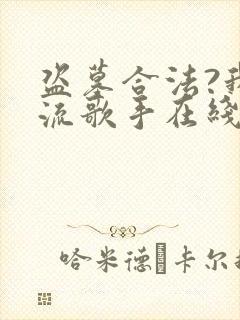 盗墓合法?我
流歌手在线
哈米德·卡尔扎